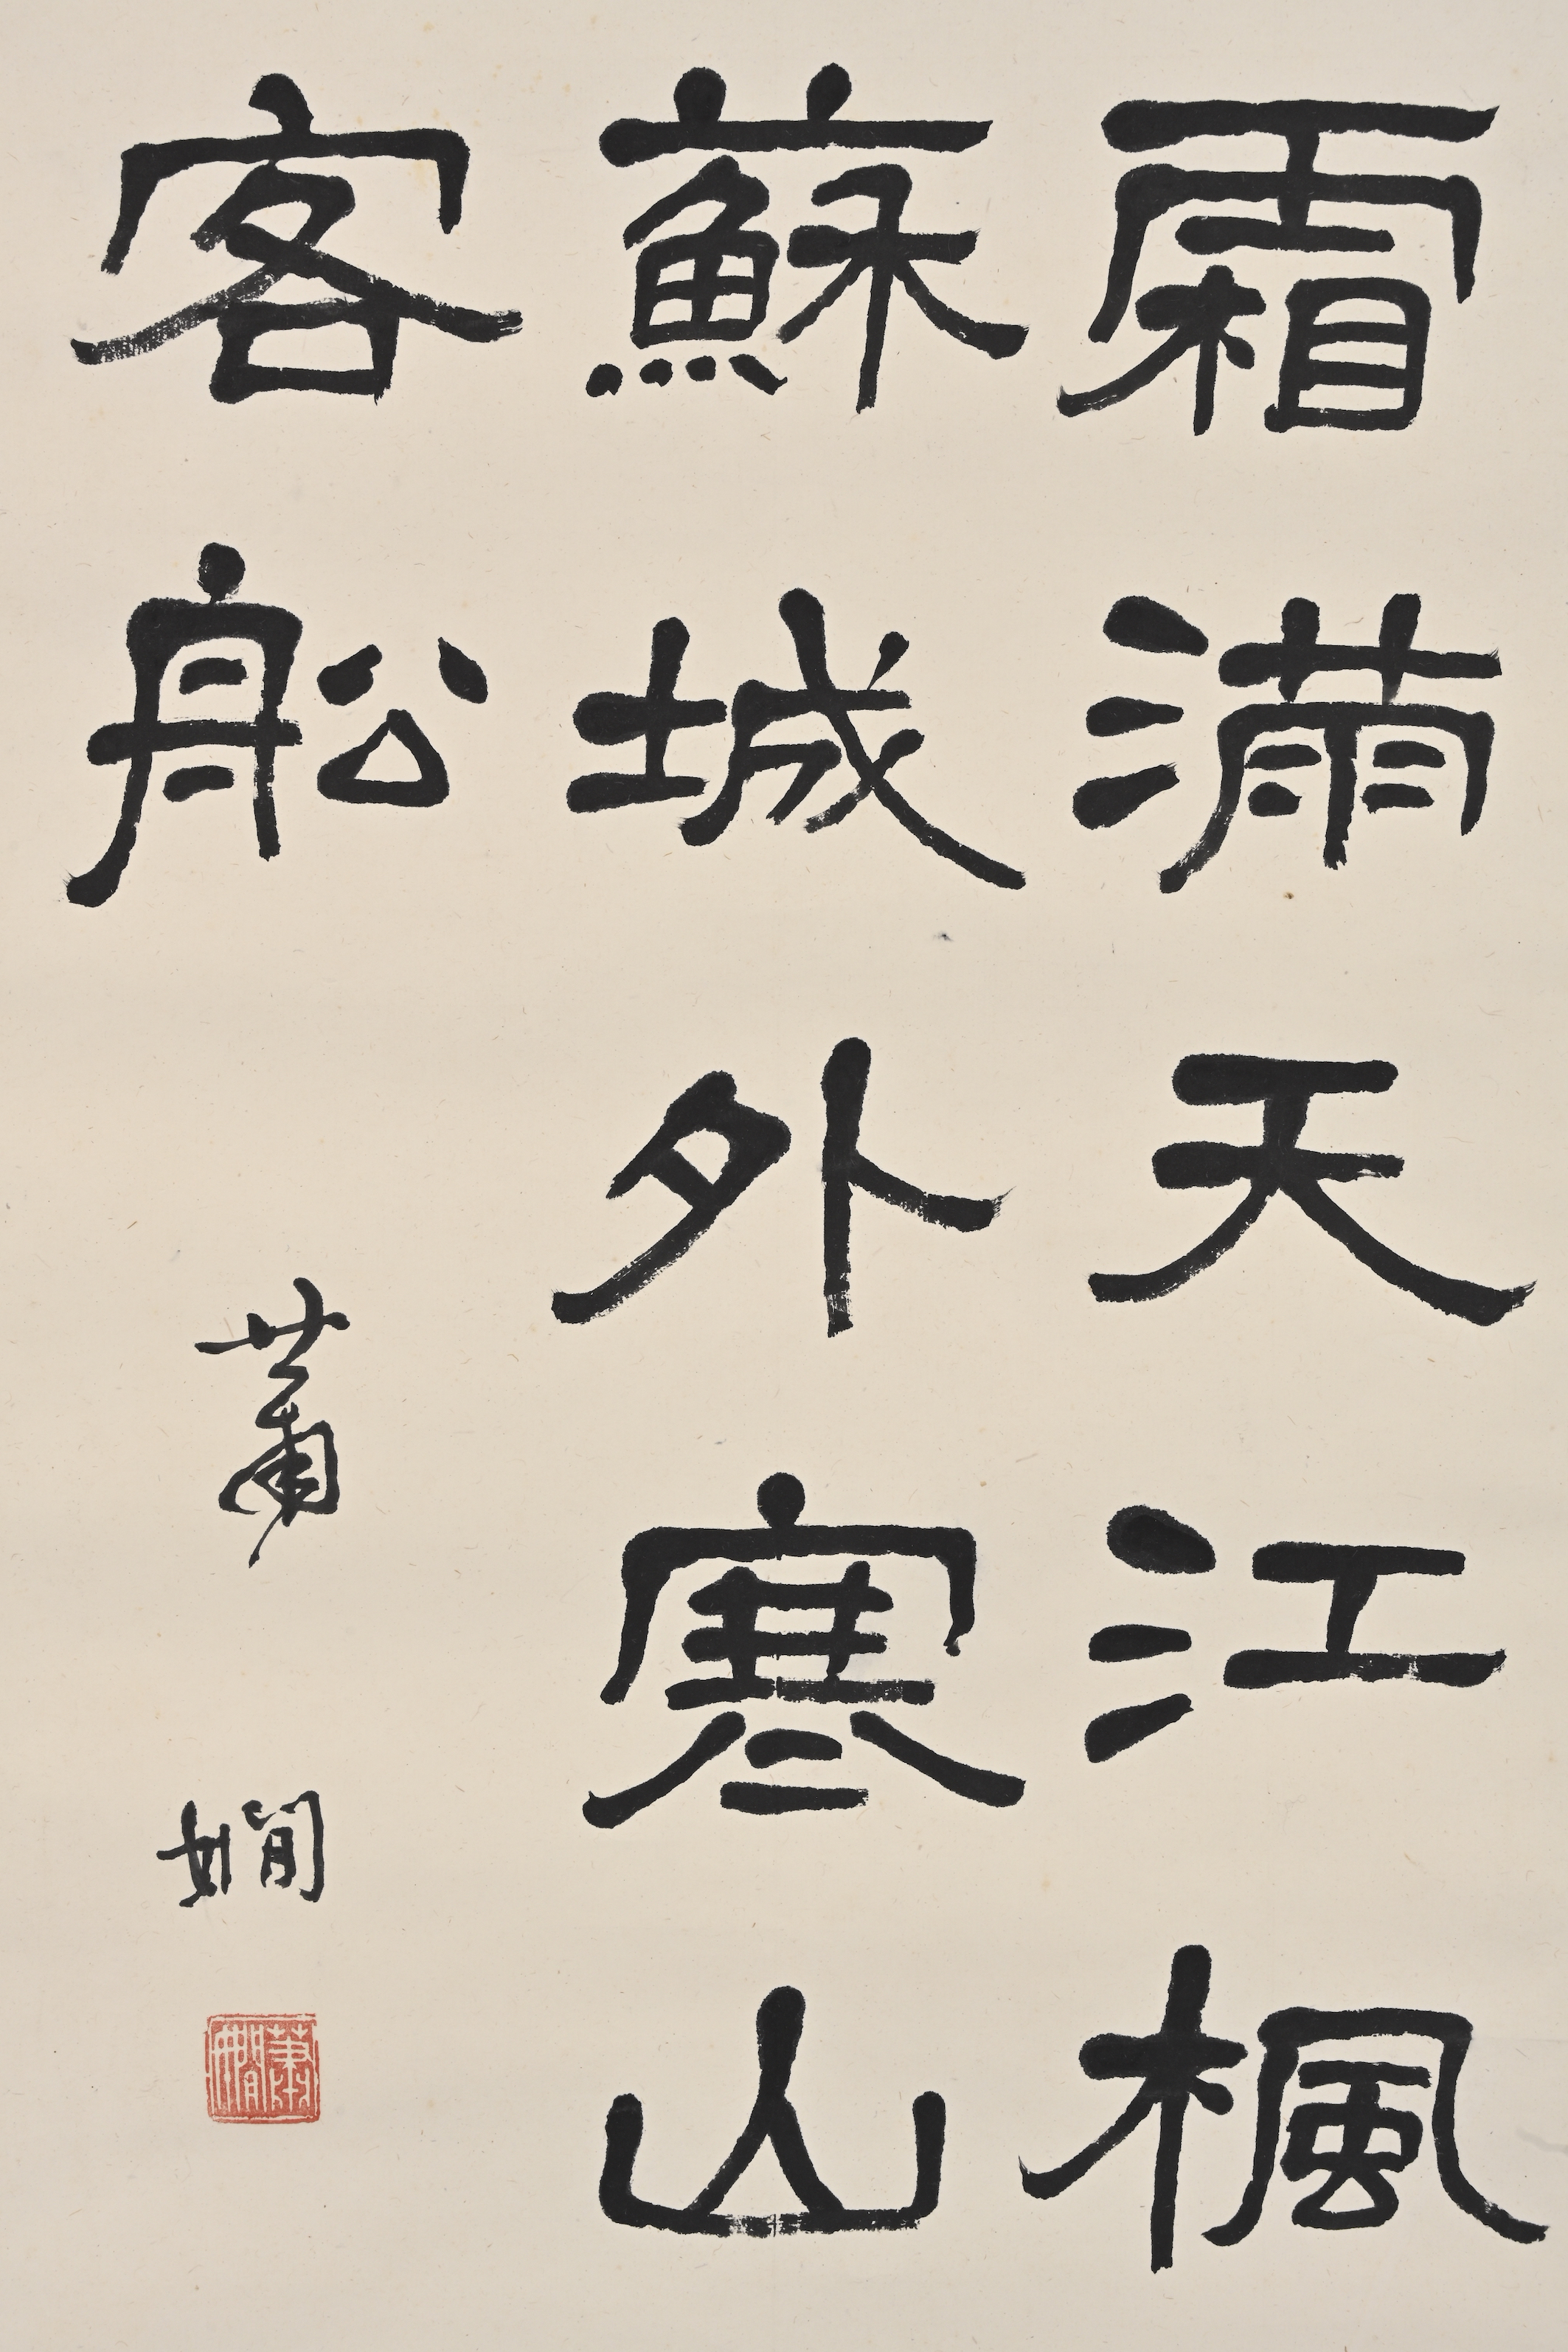 霜滿天江楓
蘇城外寒山
客船
蕭嫺
蕭嫺